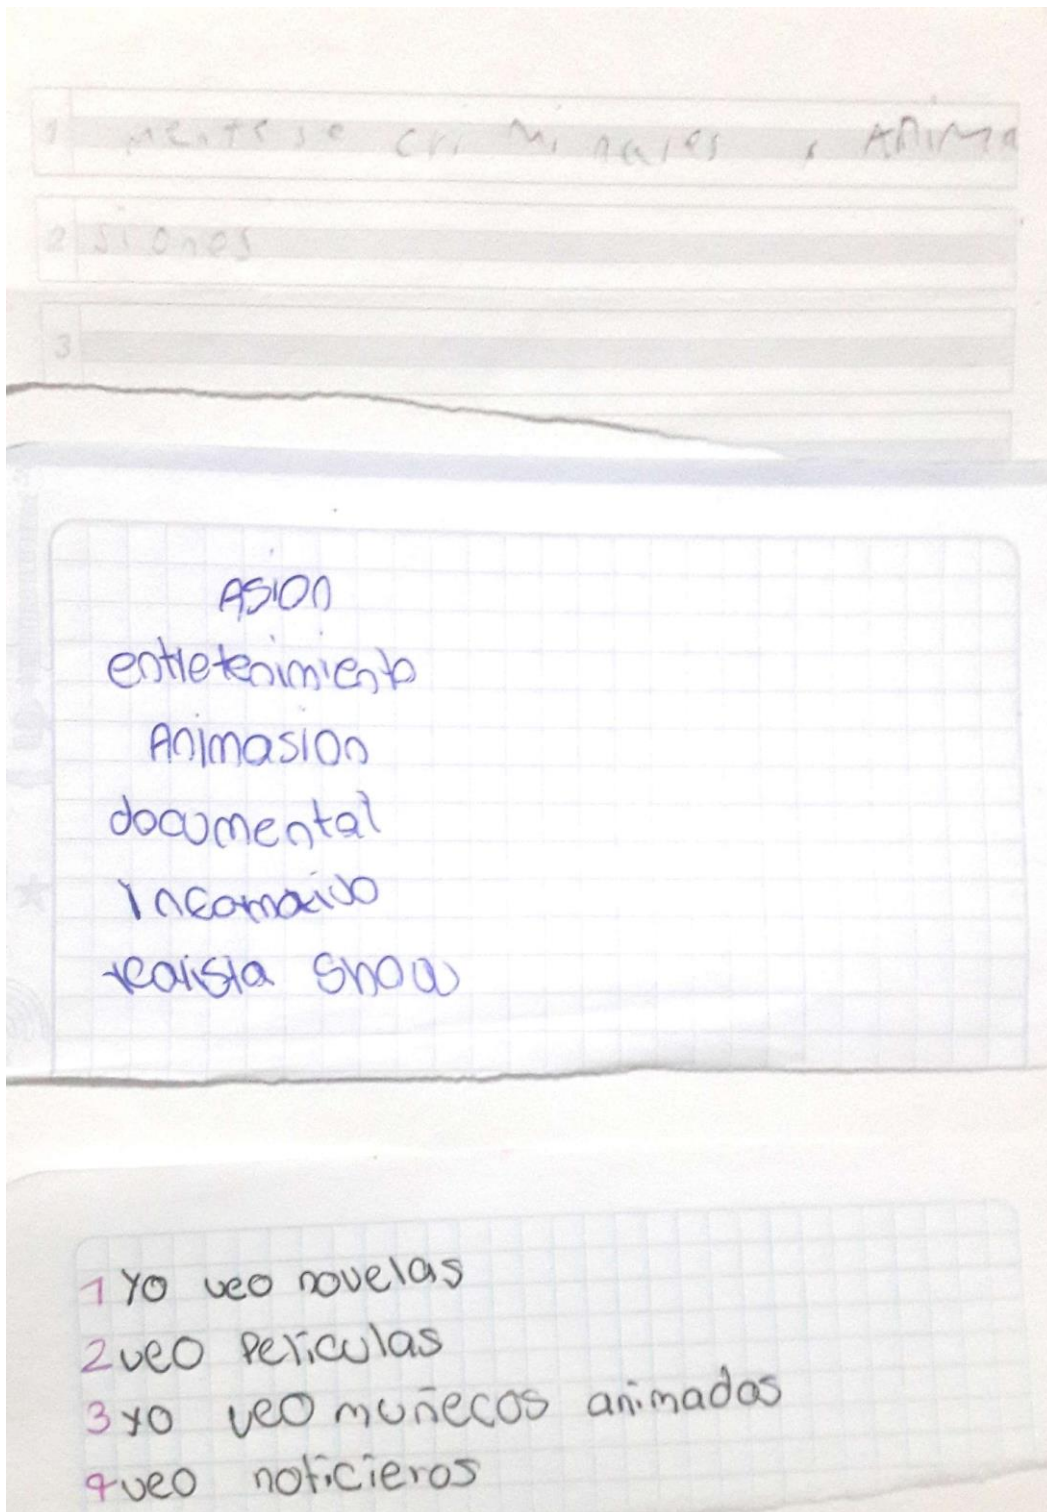 1 mentese criminales, Anima
2 siones
3
ASION
entretenimiento
Animasion
documental
realista Show
1 Yo veo novelas
2 veo Peliculas
3 yo veo muñecos animados
4 veo noticieros